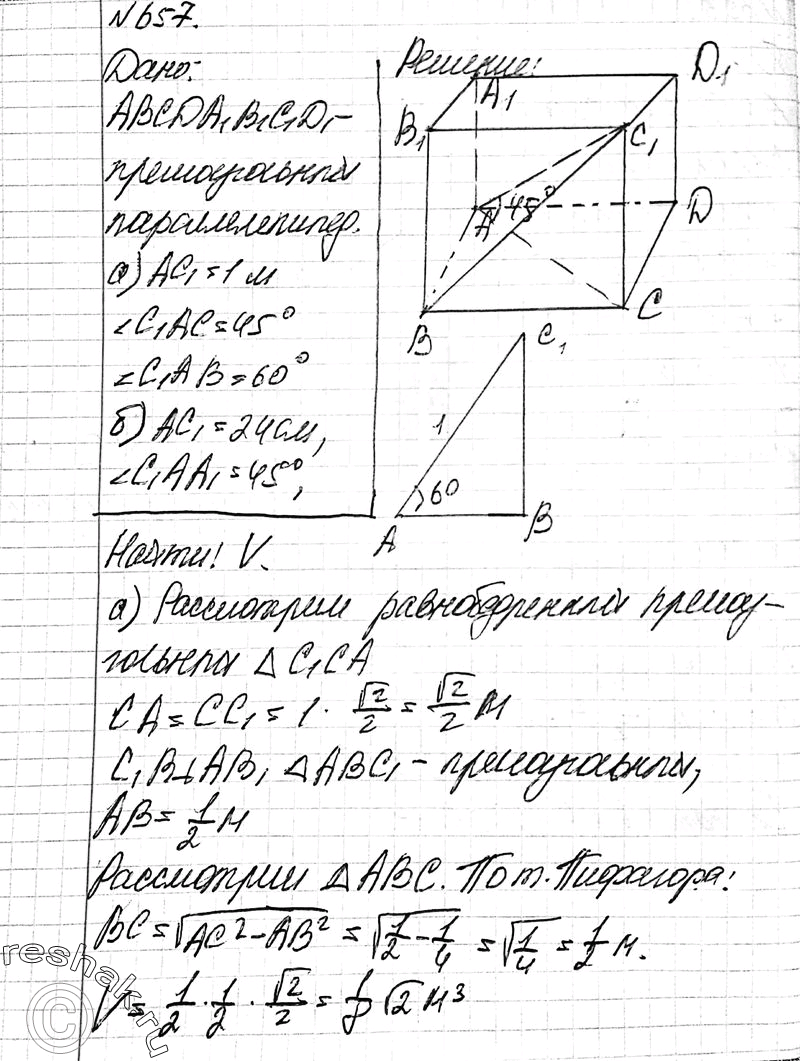 №657.
Дано:
ABCDA₁B₁C₁D₁-
прямоугольный
параллелепипед.
а) AC₁=1 м
∠C₁AC=45°
∠C₁AB=60°
б) AC₁=24см,
∠C₁AA₁=45°,
Решение:
A₁
D₁
B₁
C₁
A
45°
D
B
C
C₁
1
60
A
B
Найти: V.
а) Рассмотрим равнобедренный прямоу-
гольный △ C₁CA
CA=CC₁=1·√2/2=√2/2 м
C₁B⊥AB, △ABC₁-прямоугольный,
AB=1/2 м
Рассмотрим △ABC. По т. Пифагора:
BC=√(AC²-AB²)=√(1/2-1/4)=√(1/4)=1/2 м.
V=1/2·1/2·√2/2=1/8 √2 м³
reshak.ru
©